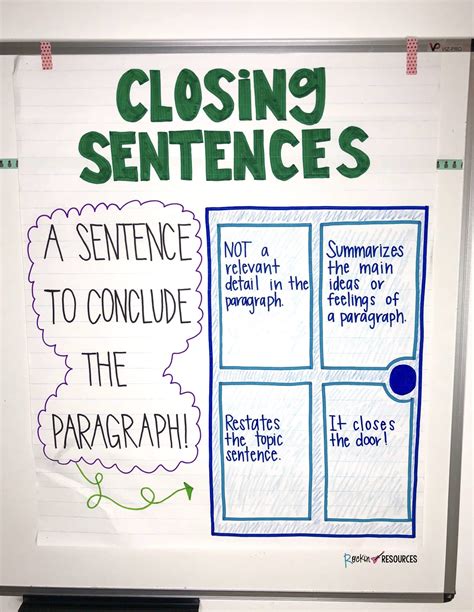 CLOSING
SENTENCES
A SENTENCE
TO CONCLUDE
THE
PARAGRAPH!
NOT a
relevant
detail in the
paragraph.
Summarizes
the main
ideas or
feelings of
a paragraph.
Restates
the topic
sentence.
It closes
the door!
Rockin RESOURCES